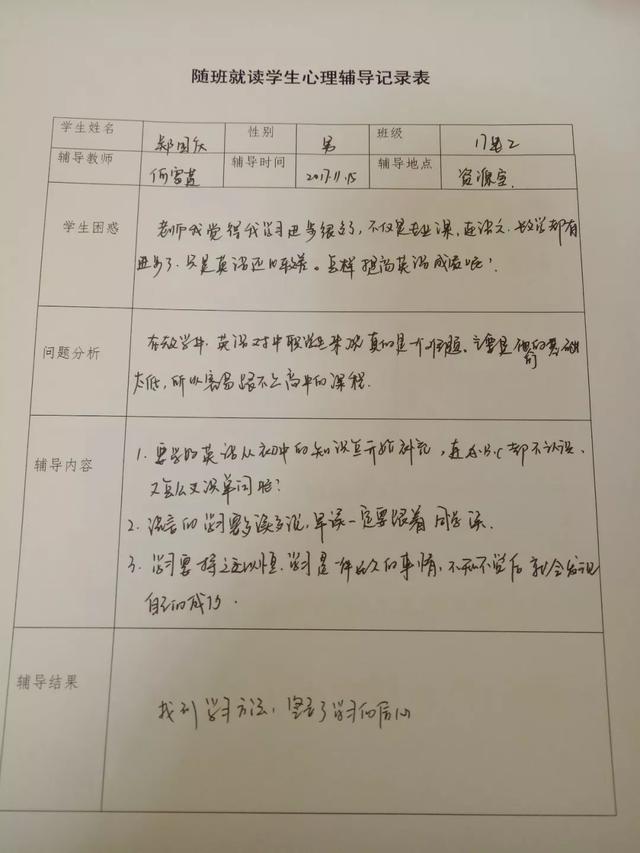 随班就读学生心理辅导记录表
学生姓名 郑国庆 性别 男 班级 17
辅导教师 何雪 辅导时间 2017.11.15 辅导地点 资源室
学生困惑
老师我觉得我学习进步很多了,不仅是专业课,连语文、数学都有
进步了.只是英语还比较差。怎样提高英语成绩呢?
问题分析
在教学中,英语对中职学生来说真的是个难题。主要是他们的基础
太低,所以容易跟不上高中的课程.
辅导内容
1. 要学好英语从初中的知识点开始补充,连ABC都不认识,
又怎么认识单词呢?
2. 语言的学习要多读多说,早读一定要跟着同学读.
3. 学习要持之以恒.学习是一件长久的事情,不知不觉后就会发现
自己的成功.
辅导结果
找到学习方法,坚定了学习的信心